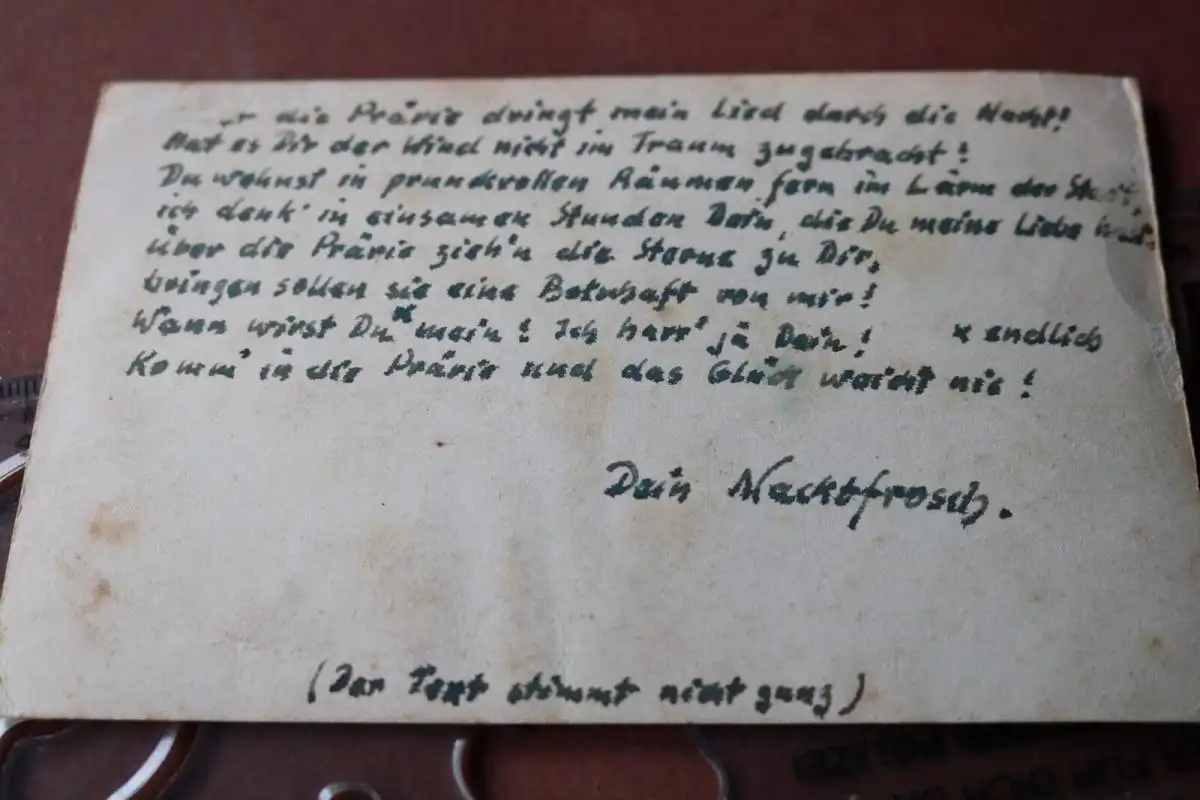 die Prärie dringt mein Lied durch die Nacht!
Hat es Dir der Wind nicht im Traum zugebracht!
Du wohnst in prunkvollen Räumen fern im Lärm der
ich denk' in einsamen Stunden Dein, die Du meine Liebe
über die Prärie zieh'n die Sterne zu Dir,
bringen sollen sie eine Botschaft von mir!
Wann wirst Du x mein! Ich harr' ja Dein! x endlich
Komm' in die Prärie und das Glück weicht nie!
Dein Nacktfrosch.
(Der Text stimmt nicht ganz)